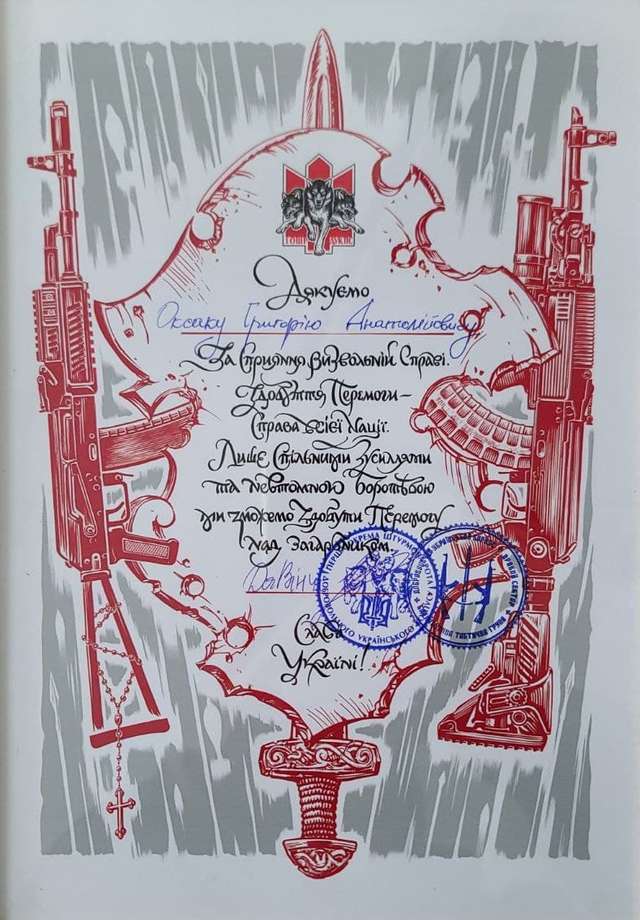 Дякуємо
Оксаку Григорію Анатолійовичу
За Сприяння Визвольній Справі.
Здобуття Перемоги –
Справа всієї Нації.
Лише Спільними Зусиллями
та невтомною боротьбою
ми зможемо Здобути Перемогу
над загарбником.
ДаВінчі
ПЕРША ОКРЕМА ШТУРМОВА РОТА
ДОБРОВОЛЬЧОГО УКРАЇНСЬКОГО
ПРАВИЙ СЕКТОР
ТАКТИЧНА ГРУПА
Слава
Україні!